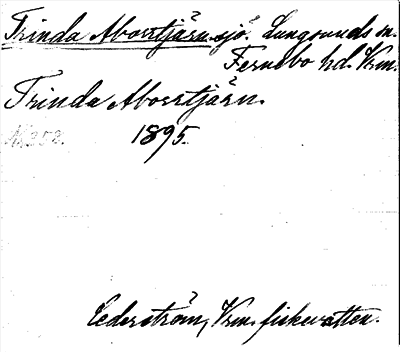 Trinda Aborrtjärn sjö. Lungsunds sn.
Fernebo hd. Vrm.
Trinda Aborrtjärn.
No 252. 1895.
Cederström, Vrm. fiskevatten.